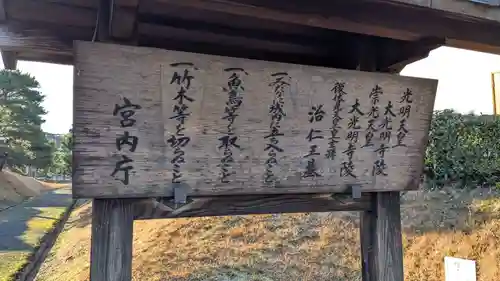 光明天皇
大光明寺陵
崇光天皇
大光明寺陵
大光明寺陵
治仁王墓
一みだりに域内に立入らぬこと
一魚鳥等を取らぬこと
一竹木等を切らぬこと
宮内庁